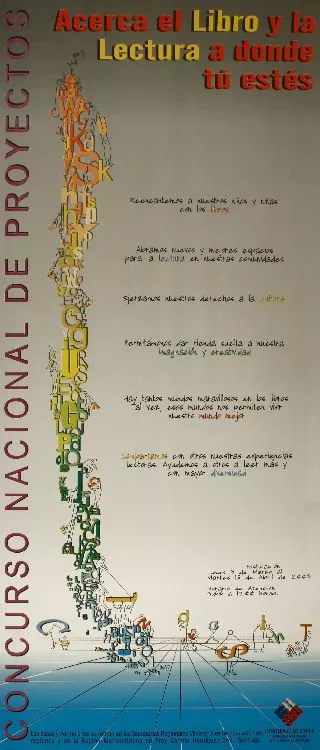 CONCURSO NACIONAL DE PROYECTOS
Acerca el Libro y la
Lectura a donde
tú estés
Reencantemos a nuestros niños y niñas
con los libros
Abramos nuevos y mejores espacios
para la lectura en nuestras comunidades
Ejerzamos nuestros derechos a la cultura
Permitámonos dar rienda suelta a nuestra
imaginación y creatividad
Hay tantos mundos maravillosos en los libros
al leer, esos mundos nos permiten vivir
nuestro mundo mejor
Compartamos con otros nuestras experiencias
lectoras. Ayudemos a otros a leer más y
con mayor diversidad
de Marzo al
Martes 15 de Abril de
Horario de Atención
Las Bases y Formularios se retiran en las Secretarías Regionales Ministeriales de Educación en
regiones y en la Región Metropolitana en Fray Camilo Henríquez 262, Santiago.
GOBIERNO DE CHILE